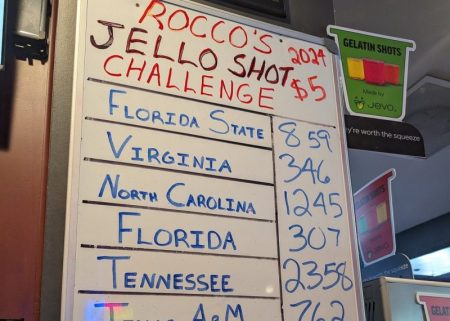 ROCCO'S
JELLO SHOT 2024
CHALLENGE $5
FLORIDA STATE 859
VIRGINIA 346
NORTH CAROLINA 1245
FLORIDA 307
TENNESSEE 2358
A&M 762
GELATIN SHOTS
Made by
Jevo
they're worth the squeeze
GELATIN